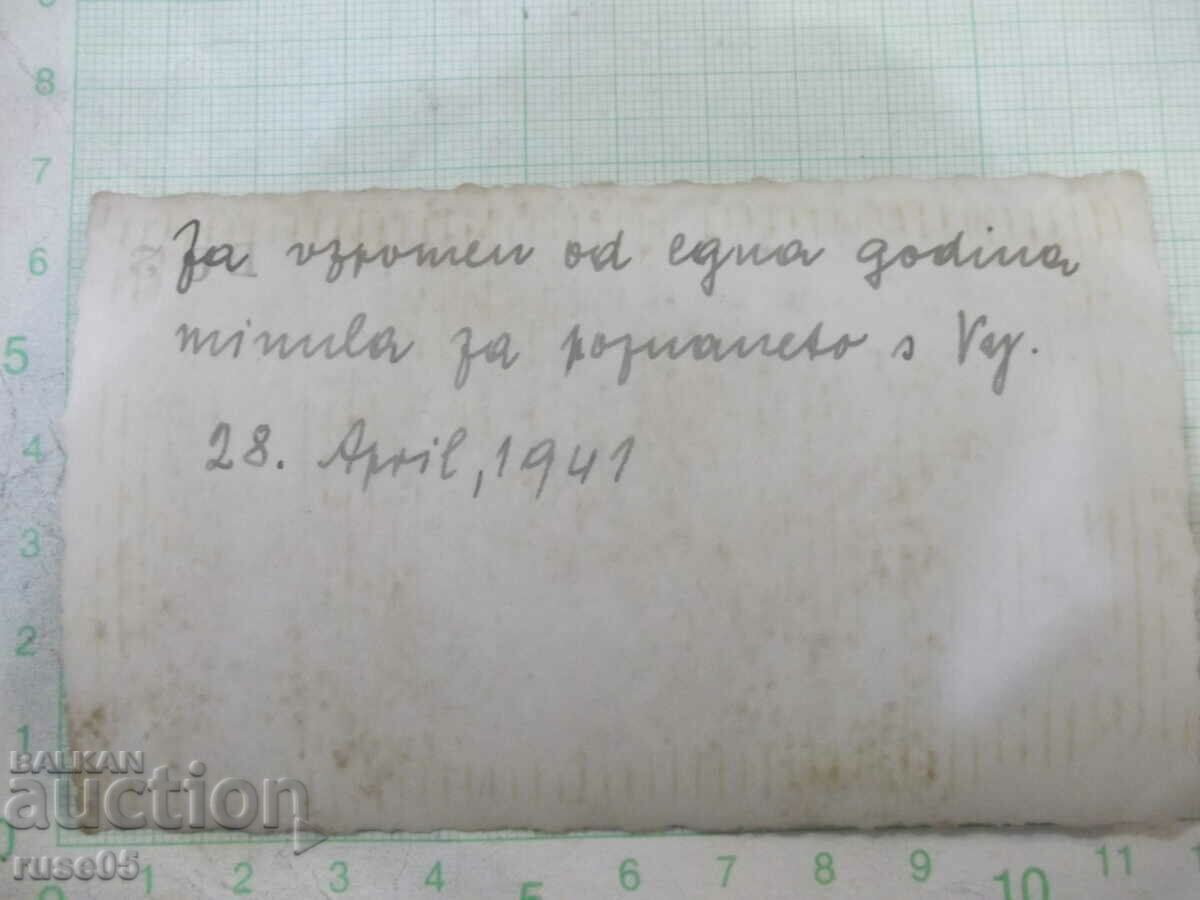 Za vzpomen od egna godina
minula za poznaneto s Vy.
28. April, 1941
8
7
6
5
4
3
2
1
0
BALKAN
auction
ruse05
0 1 2 3 4 5 6 7 8 9 10 11